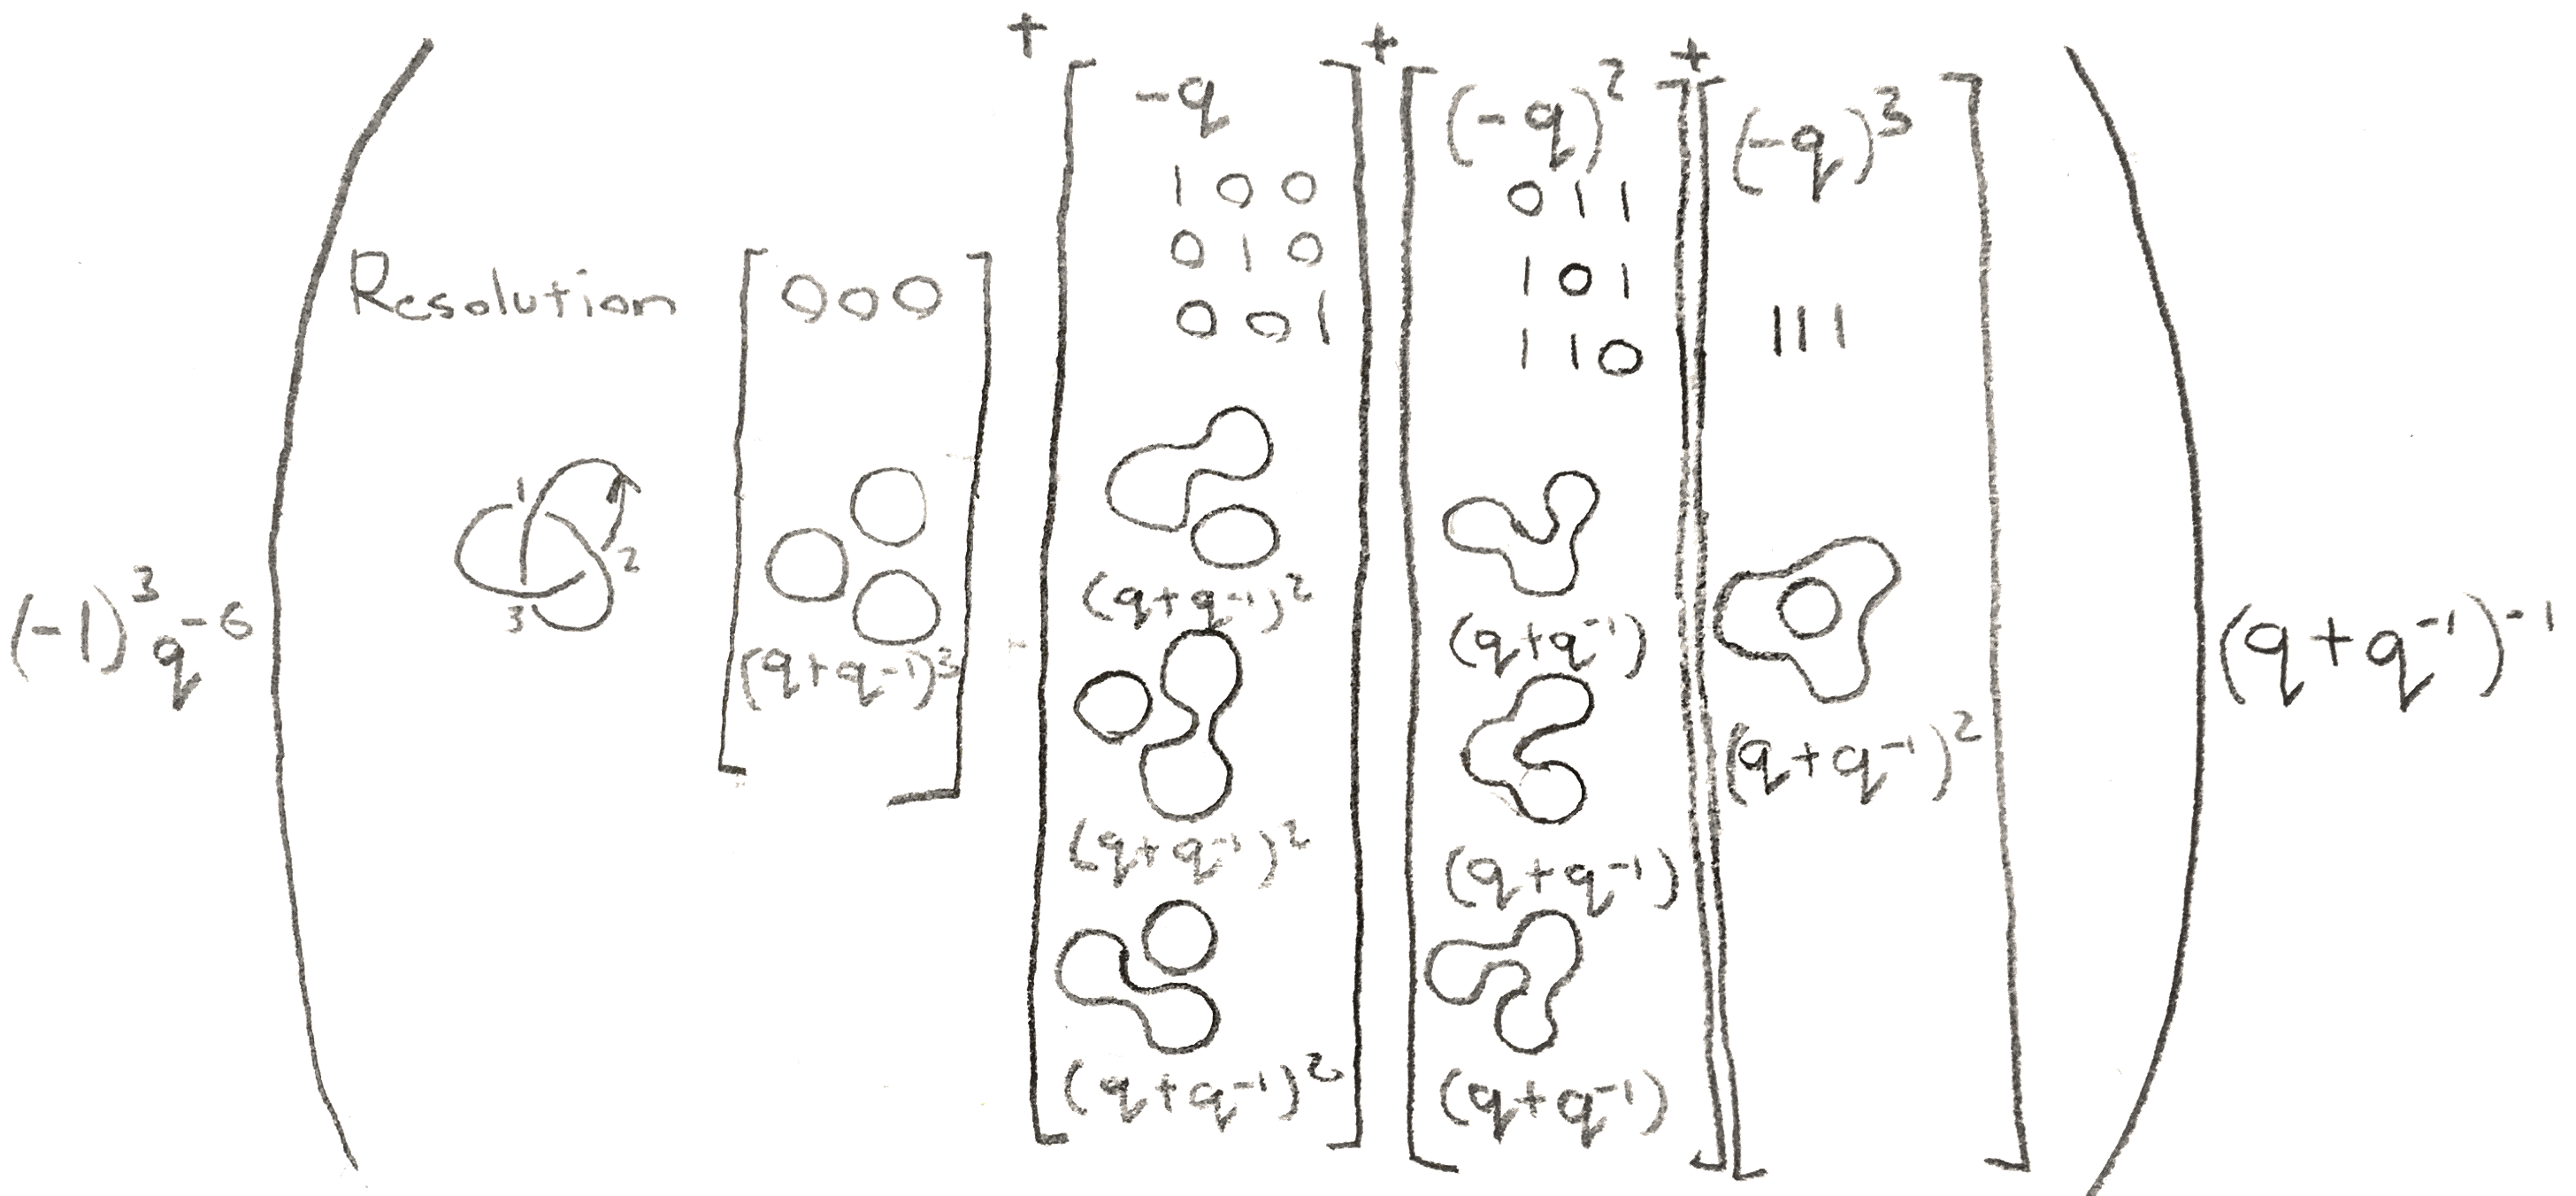 (-1)³ q⁻⁶
Resolution
1
2
3
000
(q+q⁻¹)³
+
-q
100
010
001
(q+q⁻¹)²
(q+q⁻¹)²
(q+q⁻¹)²
+
(-q)²
011
101
110
(q+q⁻¹)
(q+q⁻¹)
(q+q⁻¹)
+
(-q)³
111
(q+q⁻¹)²
(q+q⁻¹)⁻¹